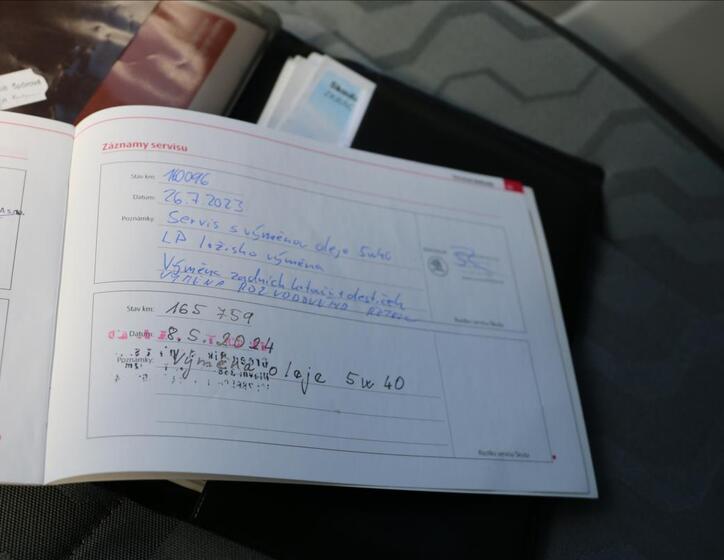 Záznamy servisu
Stav km: 160096
Datum: 26.7.2023
Poznámky: Servis s výměnou oleje 5w40
LP ložisko výměna
Výměna zadních kotoučů + destiček
VÝMĚNA ROZVODOVÉHO ŘETĚZU
Razítko servisu Škoda
Stav km: 165 759
Datum: 8.5.2024
Poznámky: Výměna oleje 5w40
Razítko servisu Škoda